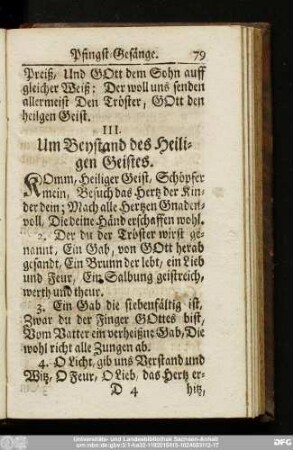 Pfingst-Gesänge. 79
Preiß, Und GOtt dem Sohn auff
gleicher Weiß: Der woll uns senden
allermeist Den Tröster, GOtt den
heilgen Geist.
III.
Um Beystand des Heili-
gen Geistes.
KOmm, Heiliger Geist, Schöpfer
mein, Besuch das Hertz der Kin-
der dein; Mach alle Hertzen Gnaden-
voll, Die deine Händ erschaffen wohl.
2. Der du der Tröster wirst ge-
nannt, Ein Gab, von GOtt herab
gesandt, Ein Brunn der lebt, ein Lieb
und Feur, Ein Salbung geistreich,
werth und theur.
3. Ein Gab die siebenfältig ist,
Zwar du der Finger GOttes bist,
Vom Vatter ein verheißne Gab, Die
wohl richt alle Zungen ab.
4. O Licht, gib uns Verstand und
Witz, O Feur, O Lieb, das Hertz er-
D 4 hitz,
Universitäts- und Landesbibliothek Sachsen-Anhalt
DFG